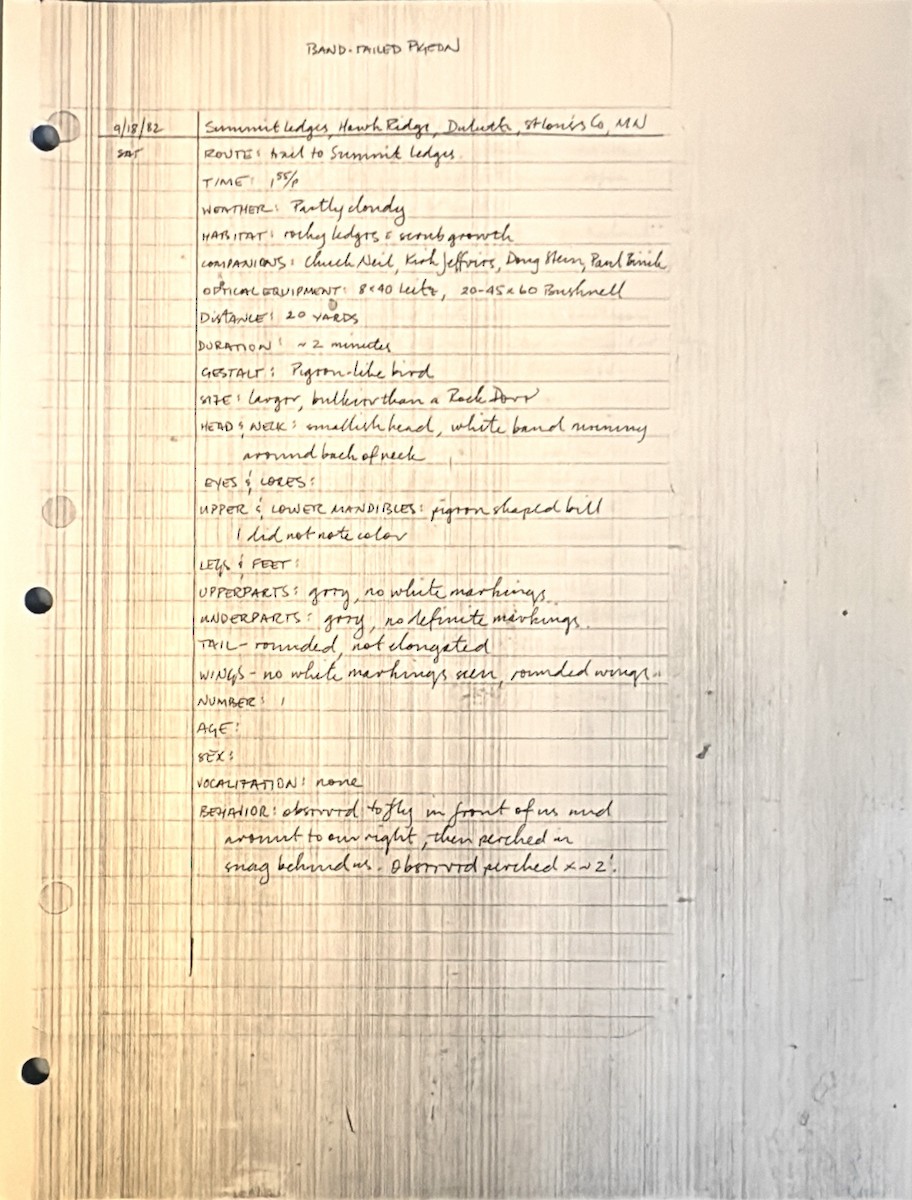 BAND-TAILED PIGEON
9/18/82 Summit Ledges, Hawk Ridge, Duluth, St Louis Co, MN
SAT ROUTE: trail to Summit Ledges.
TIME: 1 55/p
WEATHER: Partly cloudy
HABITAT: rocky ledges & scrub growth
COMPANIONS: Chuck Neil, Kirk Jeffries, Doug Stein, Paul
OPTICAL EQUIPMENT: 8x40 Leitz, 20-45x60 Bushnell
DISTANCE: 20 YARDS
DURATION: ~2 minutes
GESTALT: Pigeon-like bird
SIZE: larger, bulkier than a Rock Dove
HEAD & NECK: smallish head, white band running
around back of neck
EYES & LORES:
UPPER & LOWER MANDIBLES: pigeon shaped bill
I did not note color
LEGS & FEET:
UPPERPARTS: grey, no white markings.
UNDERPARTS: grey, no definite markings.
TAIL - rounded, not elongated
WINGS - no white markings seen, rounded wings.
NUMBER: 1
AGE:
SEX:
VOCALIZATION: none
BEHAVIOR: observed to fly in front of us and
around to our right, then perched in
snag behind us. Observed perched x ~2'.